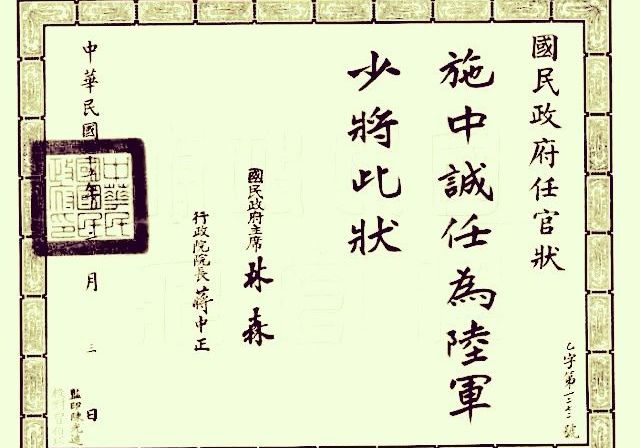 國民政府任官狀
乙字第號
施中誠任為陸軍
少將此狀
國民政府主席 林森
行政院院長 蔣中正
中華民國年月三日
中華民國國民政府印
監印陳光遠